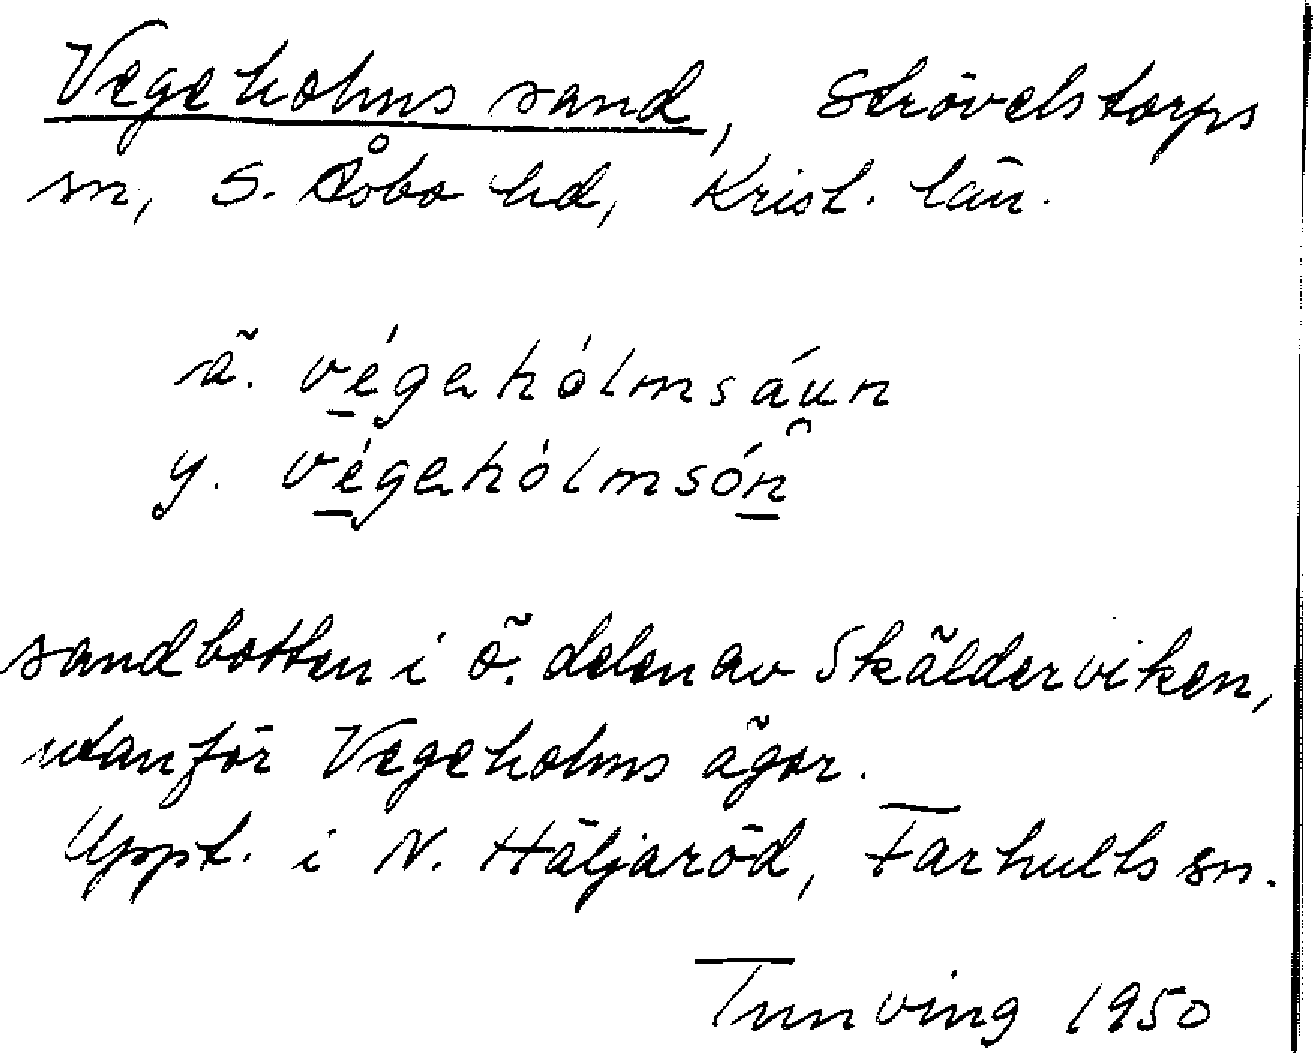 Vegeholms sand, Strövelstorps
sn, S. Åsbo hd, Krist. län.
ä. végehólmsáun
y. végehòlmsón̂
sandbotten i ö. delen av Skälderviken,
utanför Vegeholms ägor.
Uppt. i N. Häljaröd, Farhults sn.
Tunving 1950